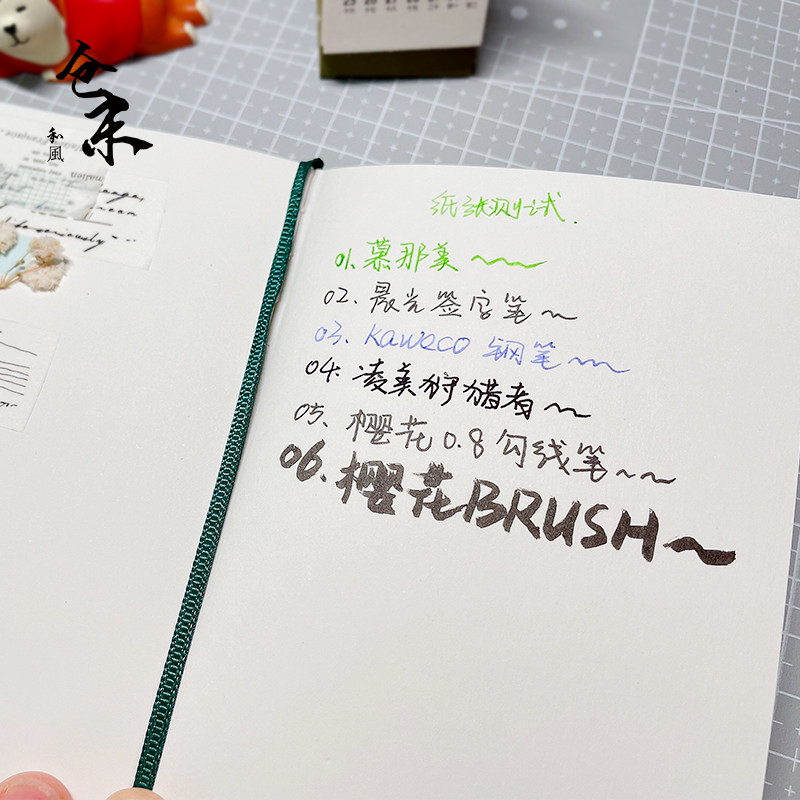 仓禾
和風
纸张测试.
01. 慕那美 ~~~
02. 晨光签字笔~
03. Kaweco 钢笔~~
04. 凌美狩猎者~
05. 樱花0.8勾线笔~~
06. 樱花BRUSH~